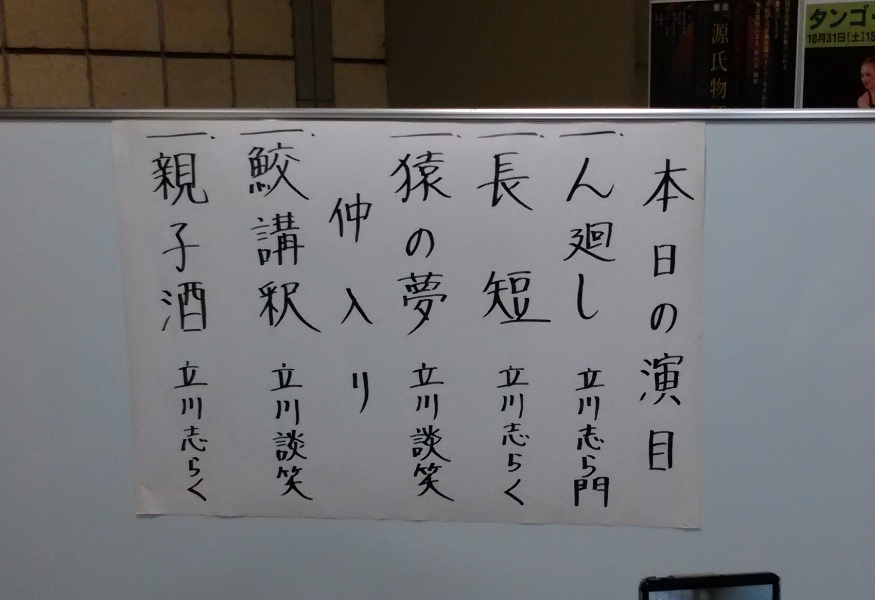 本日の演目
一、ん廻し 立川志ら門
一、長短 立川志らく
一、猿の夢 立川談笑
仲入り
一、鮫講釈 立川談笑
一、親子酒 立川志らく
源氏物
タンゴ・
10月31日[土]15